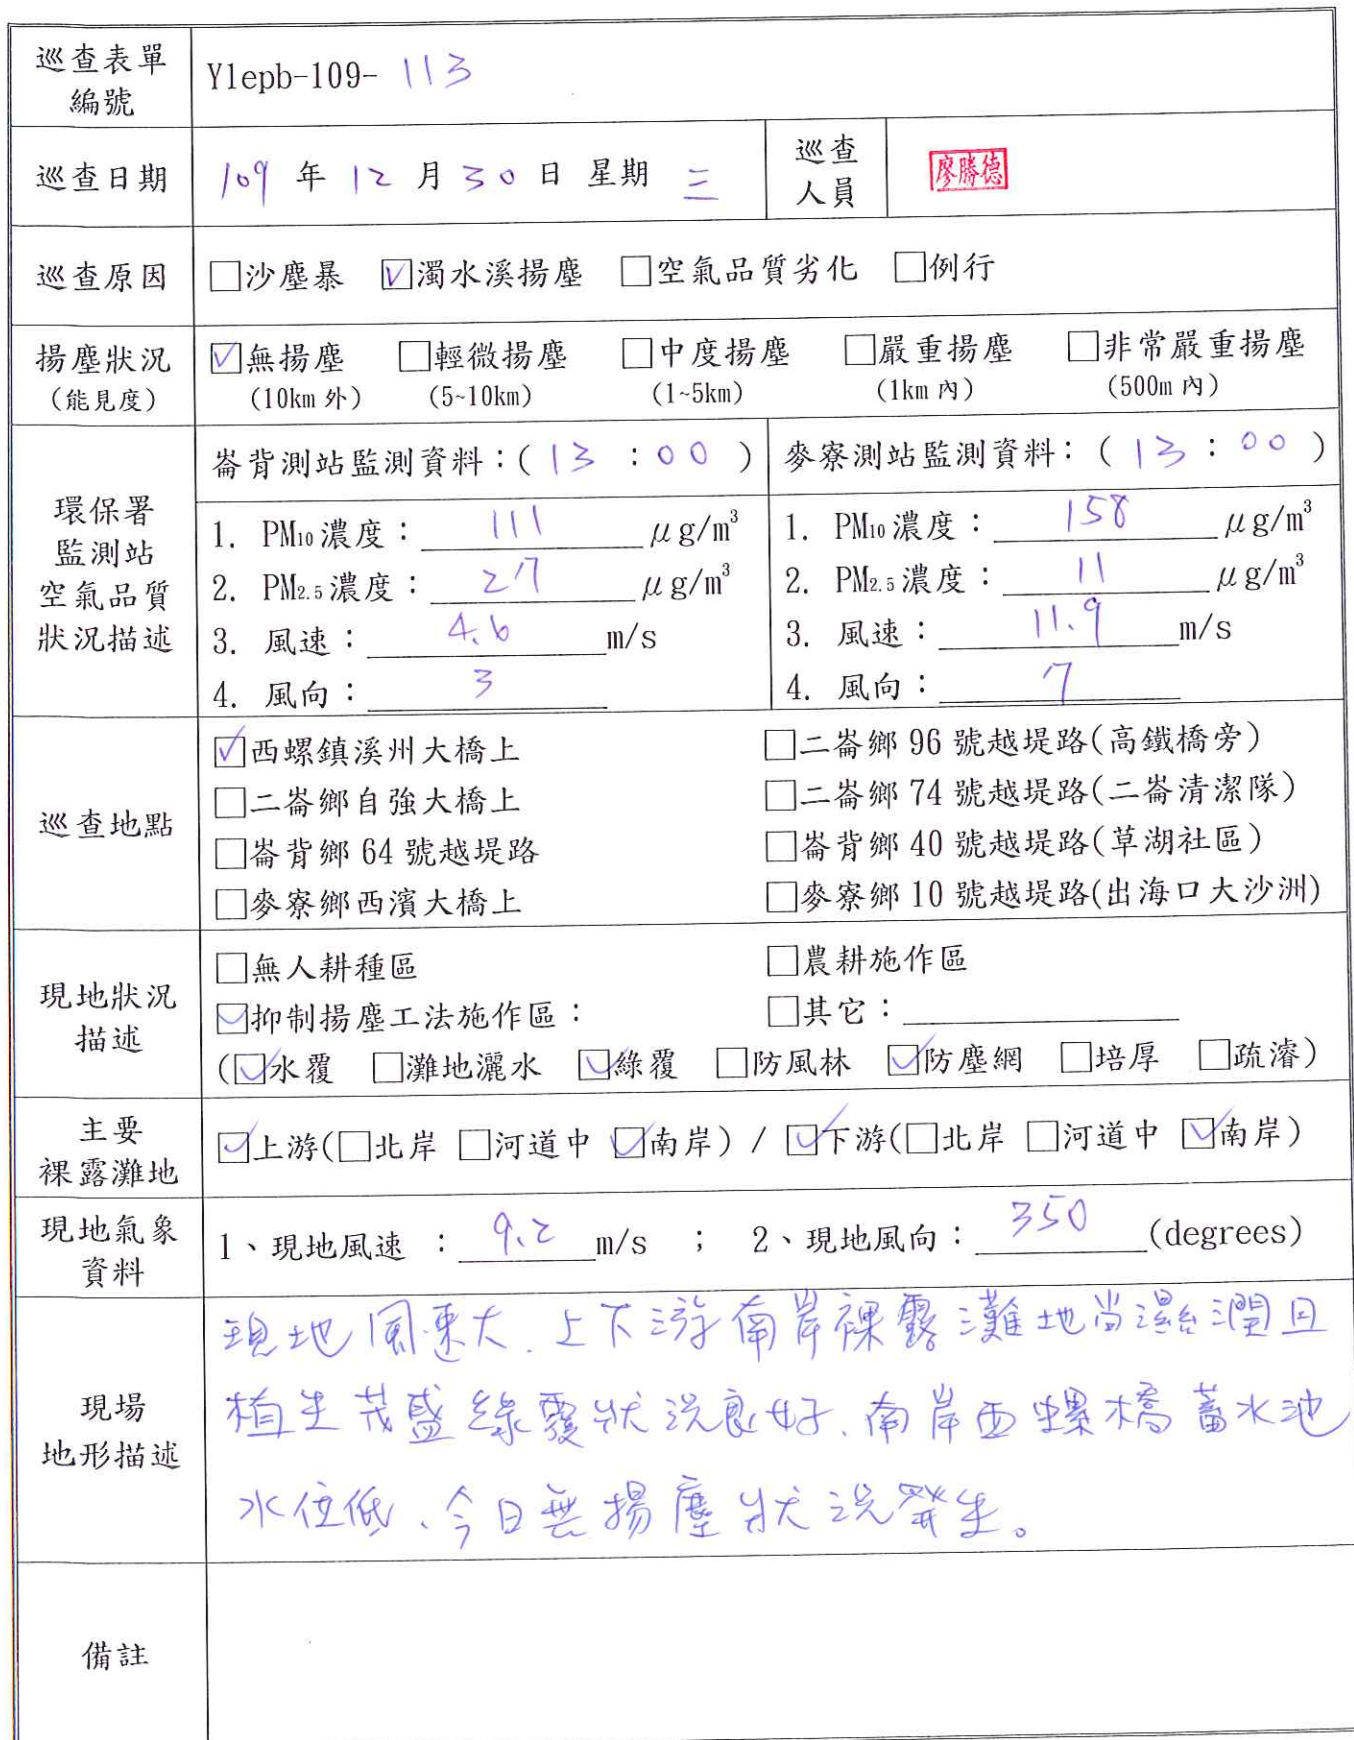 巡查表單編號 Ylepb-109-113
巡查日期 109 年 12 月 30 日 星期 三 巡查人員 廖勝德
巡查原因 □沙塵暴 ☑濁水溪揚塵 □空氣品質劣化 □例行
揚塵狀況 ☑無揚塵 □輕微揚塵 □中度揚塵 □嚴重揚塵 □非常嚴重揚塵
(能見度) (10km 外) (5~10km) (1~5km) (1km 內) (500m 內)
環保署
監測站
空氣品質
狀況描述
崙背測站監測資料：( 13 : 00 )
1. PM10 濃度： 111 μg/m³
2. PM2.5 濃度： 27 μg/m³
3. 風速： 4.6 m/s
4. 風向： 3
麥寮測站監測資料： ( 13 : 00 )
1. PM10 濃度： 158 μg/m³
2. PM2.5 濃度： 11 μg/m³
3. 風速： 11.9 m/s
4. 風向： 7
巡查地點
☑西螺鎮溪州大橋上 □二崙鄉 96 號越堤路(高鐵橋旁)
□二崙鄉自強大橋上 □二崙鄉 74 號越堤路(二崙清潔隊)
□崙背鄉 64 號越堤路 □崙背鄉 40 號越堤路(草湖社區)
□麥寮鄉西濱大橋上 □麥寮鄉 10 號越堤路(出海口大沙洲)
現地狀況
描述
□無人耕種區 □農耕施作區
☑抑制揚塵工法施作區： □其它：
(☑水覆 □灘地灑水 ☑綠覆 □防風林 ☑防塵網 □培厚 □疏濬)
主要
裸露灘地
☑上游(□北岸 □河道中 ☑南岸) / ☑下游(□北岸 □河道中 ☑南岸)
現地氣象
資料
1、現地風速 ： 9.2 m/s ； 2、現地風向： 350 (degrees)
現場
地形描述
現地風速大、上下游南岸裸露灘地尚濕潤且
植生茂盛綠覆狀況良好、南岸西螺橋蓄水池
水位低、今日無揚塵狀況發生。
備註